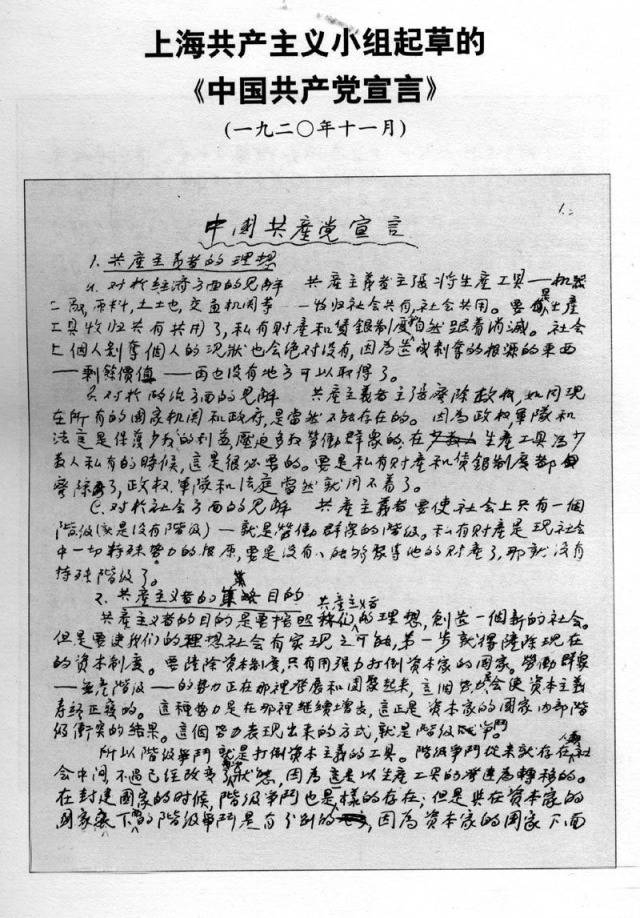 上海共产主义小组起草的
《中国共产党宣言》
(一九二〇年十一月)
1.
中國共產党宣言
1. 共產主義者的理想
a. 对於經济方面的见解 共產主義者主張將生產工具——机器
工厰, 原料, 土地, 交通机関等——收归社会共有, 社会共用。要是生產
工具收归共有共用了, 私有財產和賃銀制度就自然跟着消滅。社会
上個人剥奪個人的现狀也会绝对没有, 因為造成剥奪的根源的東西
——剩餘價值——再也没有地方可以取得了。
B. 对於政治方面的见解 共產主義者主張廢除政权, 如同现
在所有的國家机関和政府, 是當然不能存在的。因為政权, 軍隊和
法庭是保護少数人的利益, 壓迫多数勞働群衆的, 在生產工具為少
数人私有的時候, 這是很必要的。要是私有財產和賃銀制度都
廢除了, 政权, 軍隊和法庭當然就用不着了。
C. 对於社会方面的见解 共產主義者要使社会上只有一個
階級(就是没有階級)——就是勞働群衆的階級。私有財產是现社会
中一切特殊势力的根原, 要是没有人能够聚集他的財產了, 那就没有
特殊階級了。
2. 共產主義者的目的
共產主義者的目的是要按照共產主義者的理想, 創造一個新的社会。
但是要使我们的理想社会有实现之可能, 第一步就得鏟除现在
的资本制度。要鏟除资本制度, 只有用强力打倒资本家的國家。勞働群衆
——無產階級——的势力正在那裡發展和团聚起来, 這個势力会使资本主義
寿終正寢的。這種势力是在那裡继续增長, 這正是资本家的國家内部階
級衝突的结果。這個势力表现出来的方式, 就是階級爭鬥。
所以階級爭鬥就是打倒资本主義的工具。階級爭鬥從来就存在人類社
会中間, 不過已经改变了狀態, 因為這是以生產工具的發達為轉移的。
在封建國家的时候, 階級爭鬥也是一樣的存在; 但是與在资本家的
國家下面的階級爭鬥是有分别的, 因為资本家的國家下面